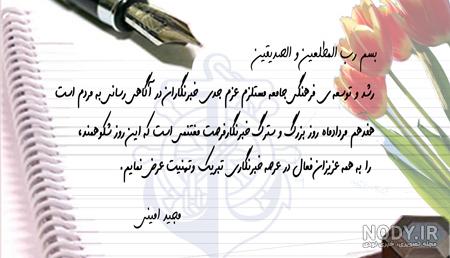 بسم رب المطلعین و الصدیقین
رشد و توسعه ی فرهنگی جامعه مستلزم عزم جدی خبرنگاران در آگاهی رسانی به مردم است
هفدهم مردادماه روز بزرگ و سترگ خبرنگار فرصت مغتنمی است که این روز شکوهمند،
را به همه عزیزان فعال در عرصه خبرنگاری تبریک و تهنیت عرض نمایم.
مجید امینی
NODY.IR